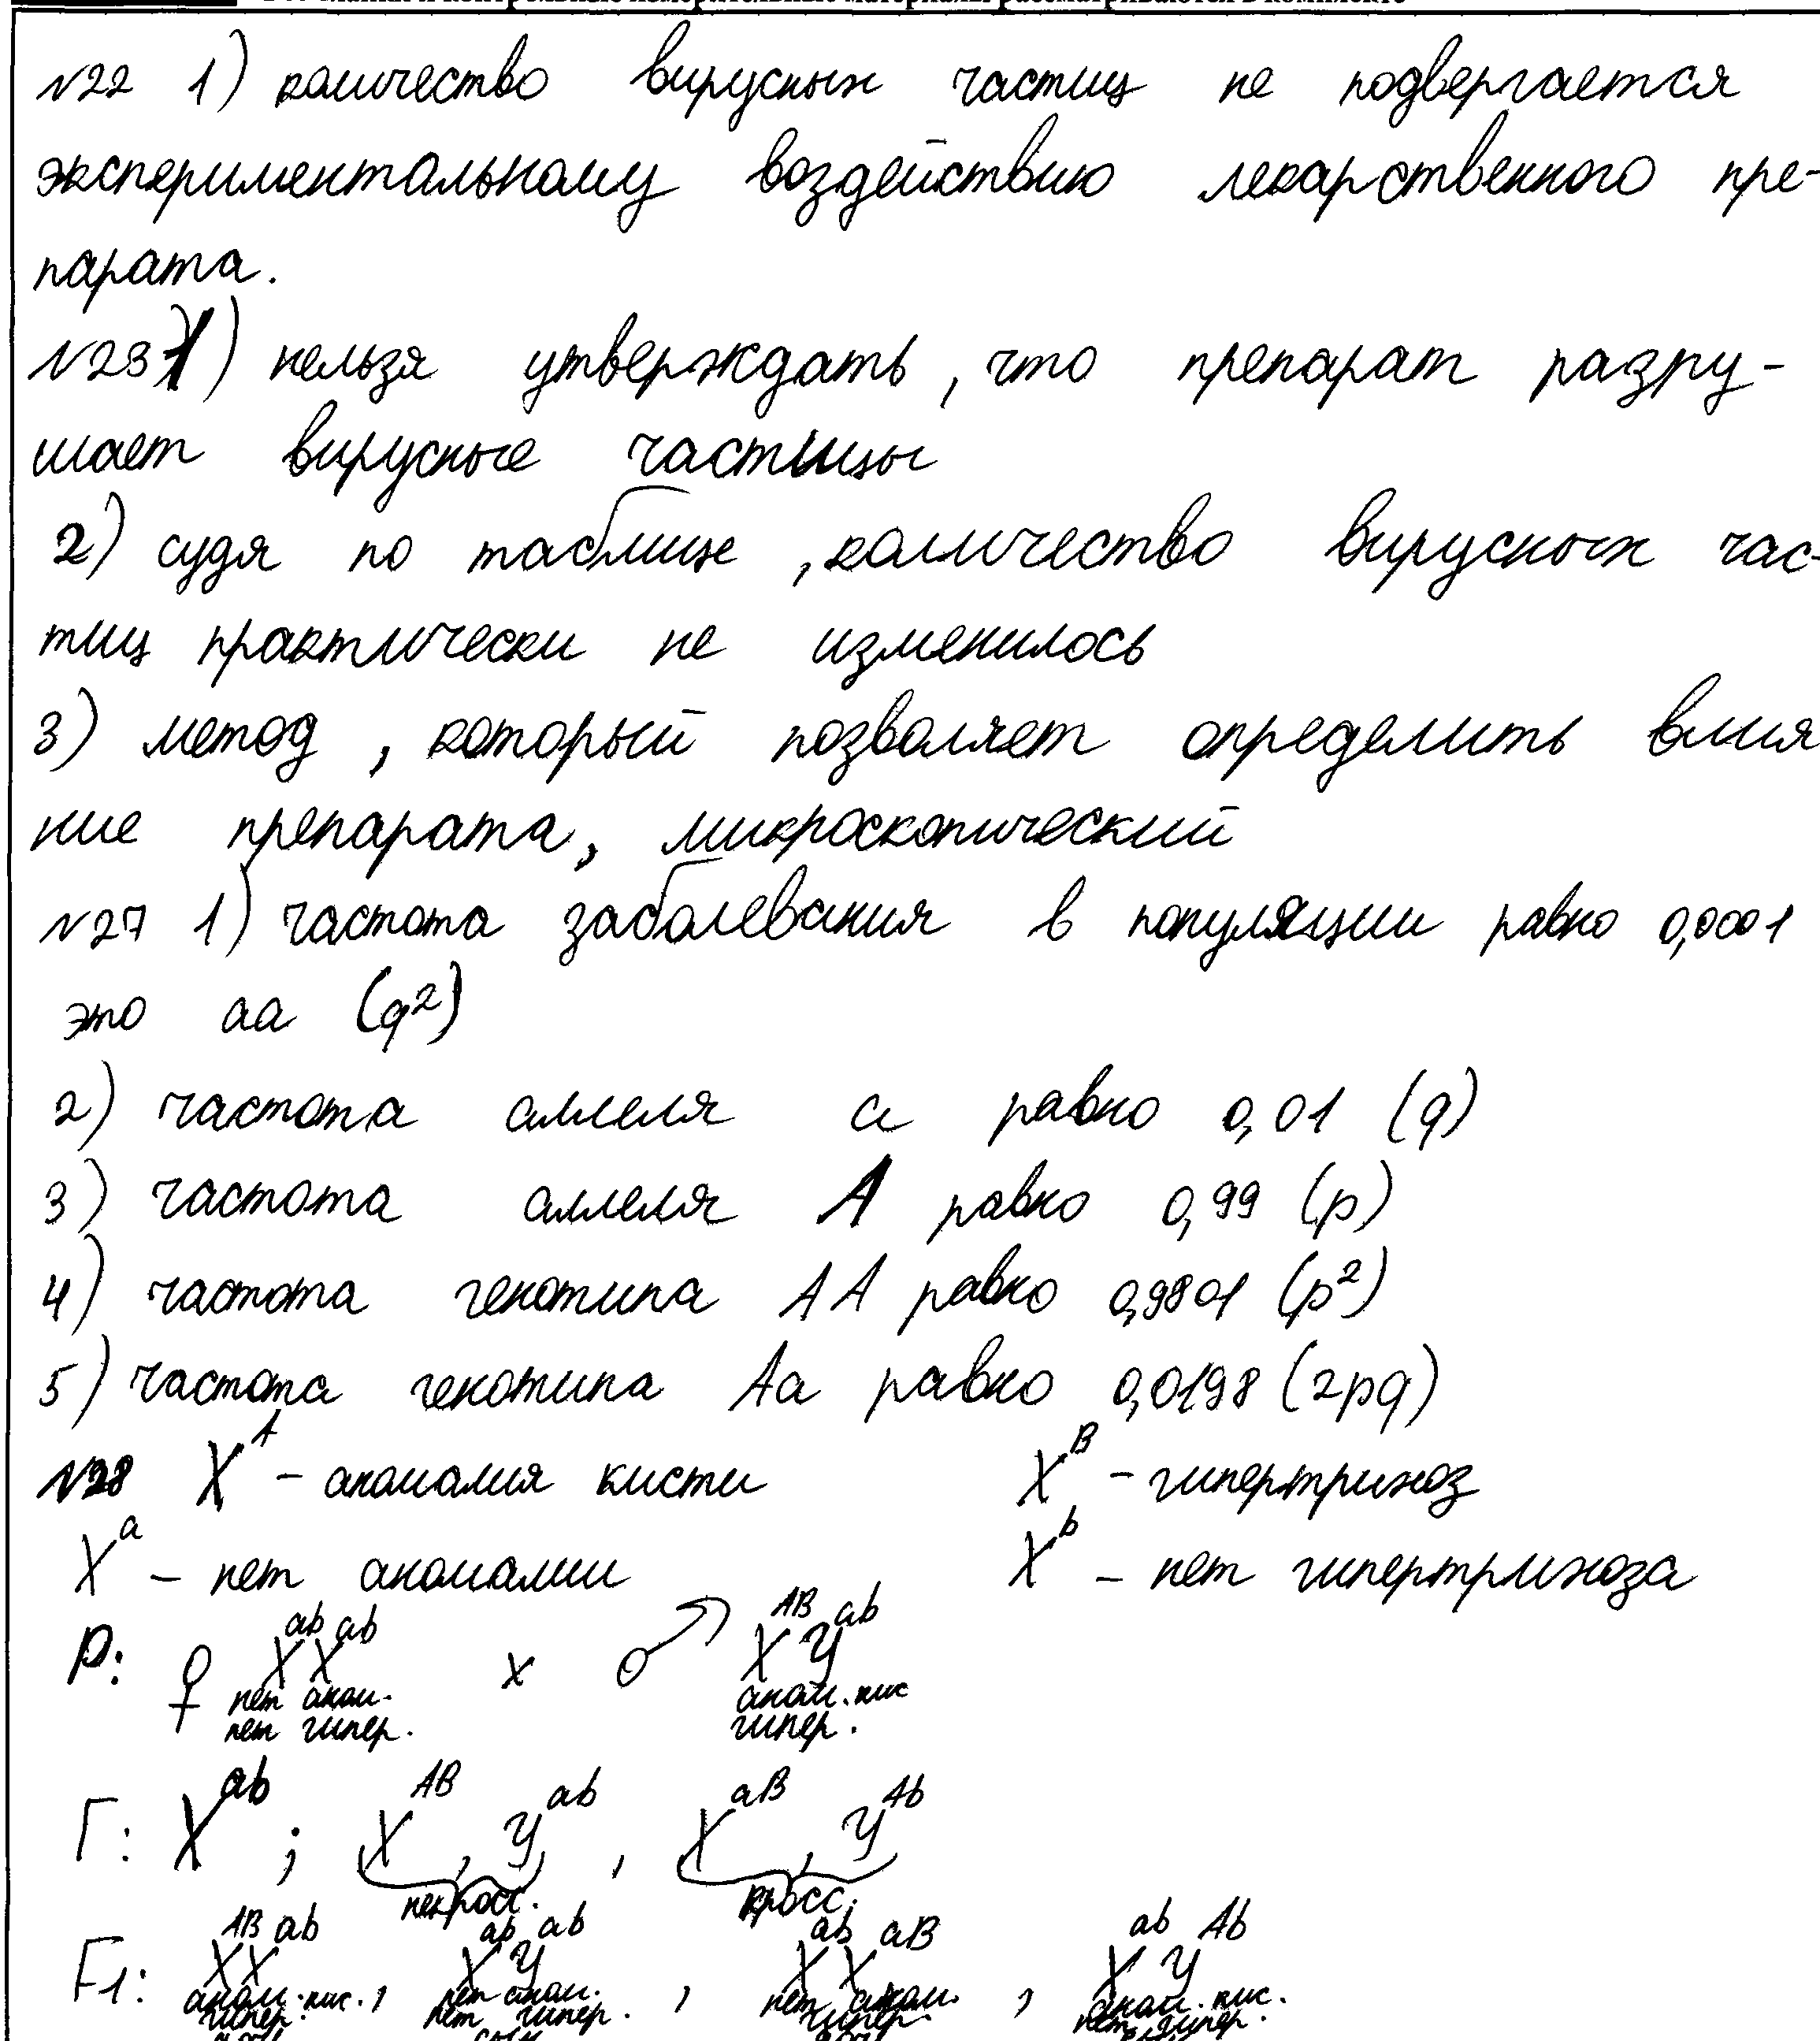 №22 1) количество вирусных частиц не подвергается
экспериментальному воздействию лекарственного пре-
парата.
№23 1) нельзя утверждать, что препарат разру-
шает вирусные частицы
2) судя по таблице, количество вирусных час-
тиц практически не изменилось
3) метод, который позволяет определить влия
ние препарата, микроскопический
№27 1) частота заболевания в популяции равно 0,0001
это aa (q²)
2) частота аллеля a равно 0,01 (q)
3) частота аллеля A равно 0,99 (p)
4) частота генотипа AA равно 0,9801 (p²)
5) частота генотипа Aa равно 0,0198 (2pq)
№28 Xᴬ - аномалия кисти Xᴮ - гипертрихоз
Xᵃ - нет аномалии Xᵇ - нет гипертрихоза
P: ♀ XᵃᵇXᵃᵇ x ♂ XᴬᴮYᵃᵇ
нет аном. аном. кис
нет гипер. гипер.
Г: Xᵃᵇ; Xᴬᴮ, Yᵃᵇ, Xᵃᴮ, Yᴬᵇ
некросс. кросс.
F1: XᴬᴮXᵃᵇ, XᵃᵇYᵃᵇ, XᵃᵇXᵃᴮ, XᵃᵇYᴬᵇ
аном. кис. нет аном. нет аном. аном. кис.
гипер. нет гипер. гипер. нет гипер.